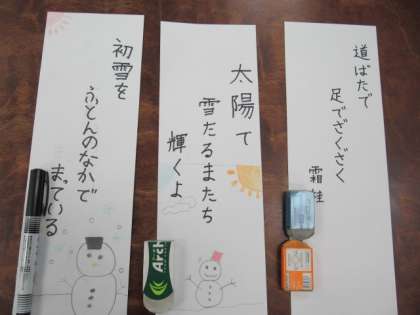 道ばたで
足でざくざく
霜柱
太陽で
雪だるまたち
輝くよ
初雪を
ふとんのなかで
まっている
Arch